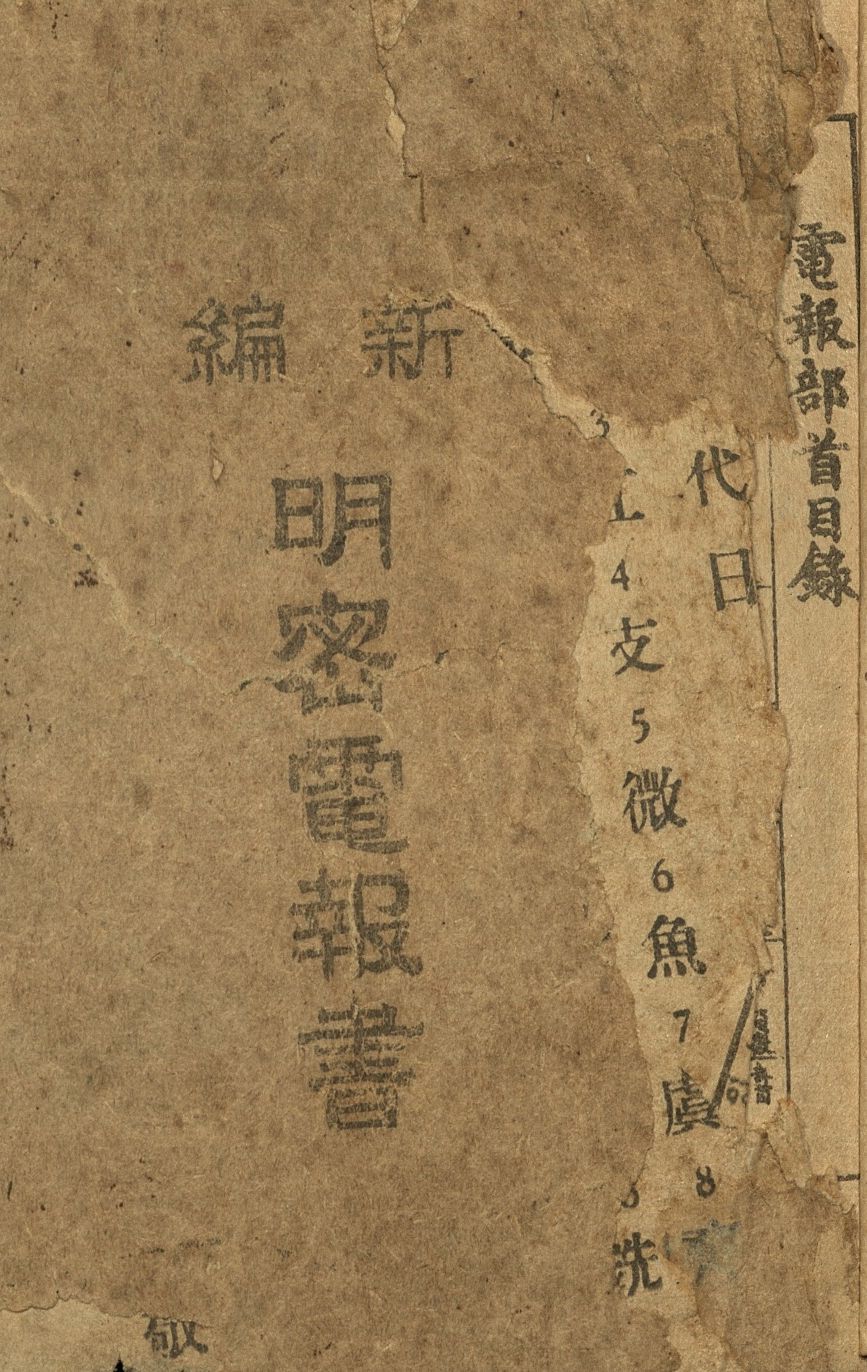 電報部首目錄
代日
3
江4支5微6魚7虞8齊
洗
新編
明密電報書
敬